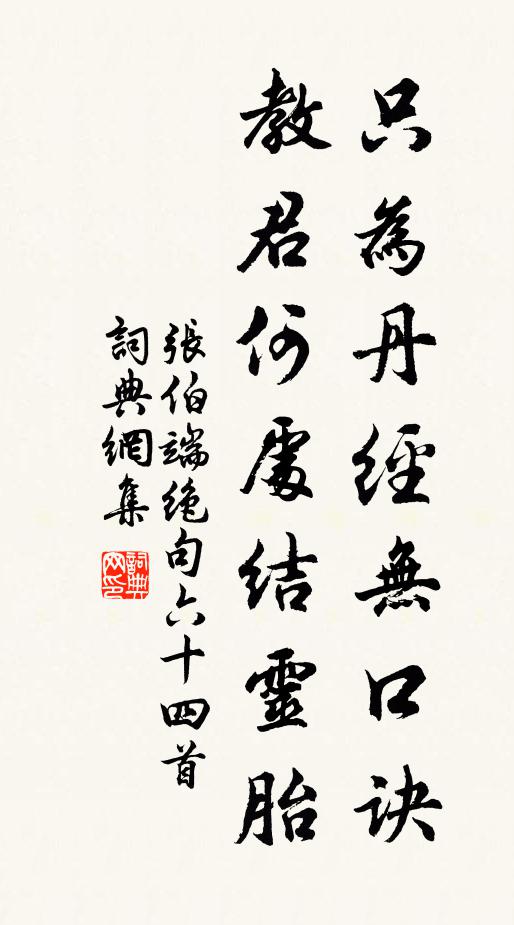 只為丹經無口诀
教君何處結靈胎
張伯端绝句六十四首
詞典網集
詞典網印